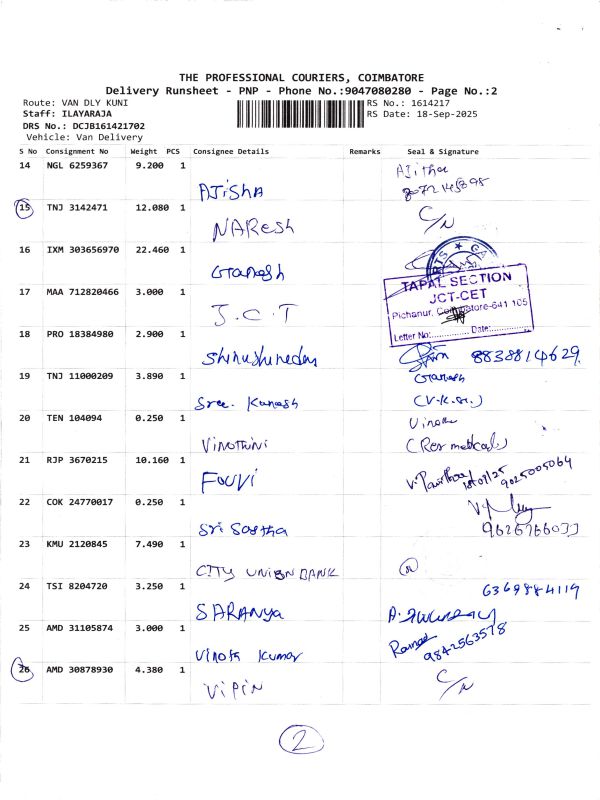 THE PROFESSIONAL COURIERS, COIMBATORE
Delivery Runsheet - PNP - Phone No.:9047080280 - Page No.:2
Route: VAN DLY KUNI RS No.: 1614217
Staff: ILAYARAJA RS Date: 18-Sep-2025
DRS No.: DCJB161421702
Vehicle: Van Delivery
S No Consignment No Weight PCS Consignee Details Remarks Seal & Signature
14 NGL 6259367 9.200 1 AJISHA Ajitha
15 TNJ 3142471 12.080 1 NARESH C/N
16 IXM 303656970 22.460 1 Ganesh
17 MAA 712820466 3.000 1 J.C.T
TAPAL SECTION
JCT-CET
Pichanur, Coimbatore-641 105
Letter No:.............. Date:..............
18 PRO 18384980 2.900 1 8838814629
19 TNJ 11000209 3.890 1 Sree. Kanesh Ganesh
20 TEN 104094 0.250 1 Vinothini
21 RJP 3670215 10.160 1 9025005064
22 COK 24770017 0.250 1 Sri Sastha
23 KMU 2120845 7.490 1 CITY UNION BANK
24 TSI 8204720 3.250 1 SARANYA 6369884119
25 AMD 31105874 3.000 1 Vinoth Kumar 9842563578
26 AMD 30878930 4.380 1 VIPIN C/N
2